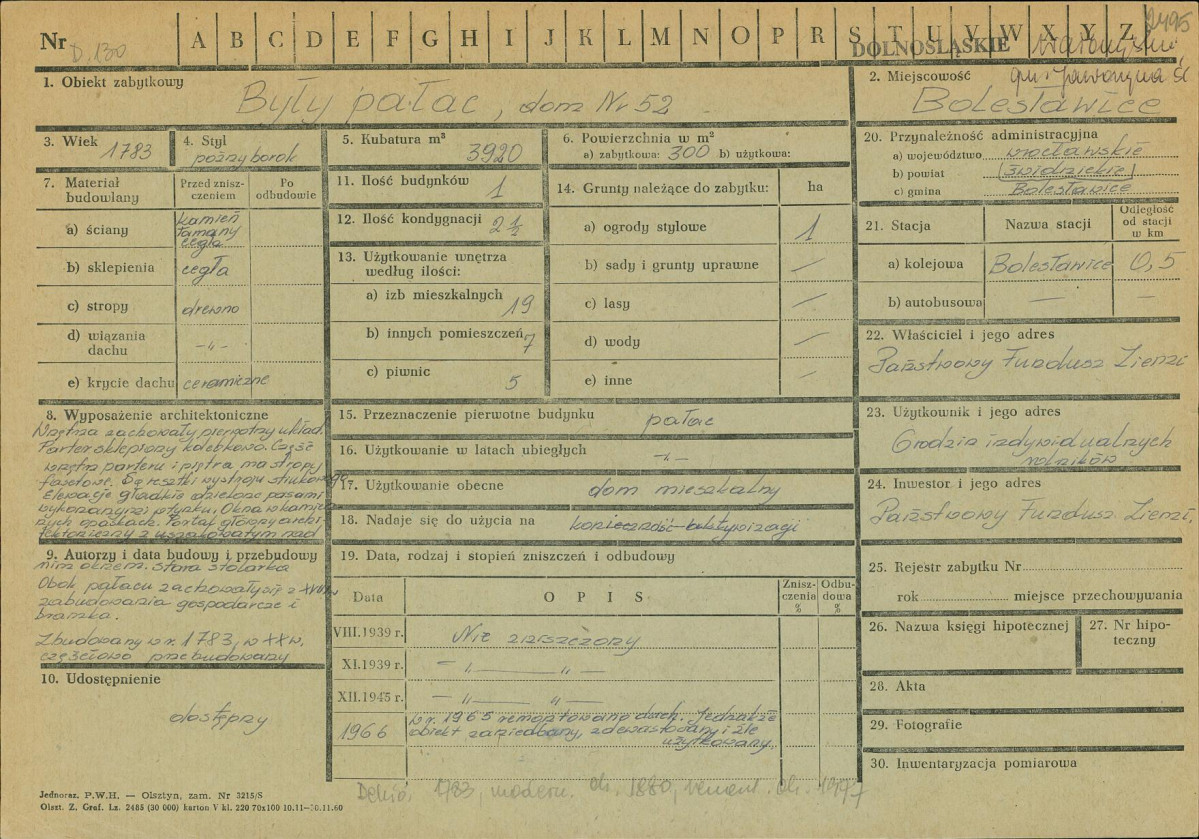 Nr D. 130 A B C D E F G H I J K L M N O P R S T U V W X Y Z 2495
DOLNOŚLĄSKIE
gm. Jaworzyna Śl
1. Obiekt zabytkowy
Były pałac, dom Nr 52
2. Miejscowość
Bolesławice
3. Wiek 1783
4. Styl
późny barok
5. Kubatura m³
3920
6. Powierzchnia w m²
a) zabytkowa: 300 b) użytkowa:
20. Przynależność administracyjna
a) województwo wrocławskie
b) powiat (świdnickie)
c) gmina Bolesławice
7. Materiał budowlany
Przed zniszczeniem
Po odbudowie
a) ściany
kamień
łamany
cegła
b) sklepienia cegła
c) stropy drewno
d) wiązania dachu -„-
e) krycie dachu ceramiczne
11. Ilość budynków 1
12. Ilość kondygnacji 2½
13. Użytkowanie wnętrza
według ilości:
a) izb mieszkalnych 19
b) innych pomieszczeń 7
c) piwnic 5
14. Grunty należące do zabytku: ha
a) ogrody stylowe 1
b) sady i grunty uprawne —
c) lasy —
d) wody —
e) inne —
21. Stacja Nazwa stacji Odległość od stacji w km
a) kolejowa Bolesławice 0,5
b) autobusowa — —
22. Właściciel i jego adres
Państwowy Fundusz Ziemi
8. Wyposażenie architektoniczne
Wnętrza zachowały pierwotny układ.
Parter sklepiony kolebkowo. Część
wnętrz parteru i piętra ma stropy
fasetowe. Są resztki wystroju stiukowego
Elewacje gładkie dzielone pasami
wykonanymi z tynku. Okna w kamien
nych opaskach. Portal główny archi
tektoniczny z uszakowatym nad
9. Autorzy i data budowy i przebudowy
nim oknem. stara stolarka
Obok pałacu zachowały się z XVIIIw
zabudowania gospodarcze i
bramka.
Zbudowany w r. 1783, w XXw.
częściowo przebudowany
10. Udostępnienie
dostępny
15. Przeznaczenie pierwotne budynku pałac
16. Użytkowanie w latach ubiegłych -„-
17. Użytkowanie obecne dom mieszkalny
18. Nadaje się do użycia na
19. Data, rodzaj i stopień zniszczeń i odbudowy
Data O P I S Zniszczenia % Odbudowa %
VIII.1939 r. Nie zniszczony
XI.1939 r. — „ — „ —
XII.1945 r. — „ — „ —
1966 w r. 1965 remontowano dach. Jednakże
obiekt zaniedbany, zdewastowany i źle
użytkowany.
23. Użytkownik i jego adres
6 rodzin indywidualnych
rolników
24. Inwestor i jego adres
Państwowy Fundusz Ziemi,
25. Rejestr zabytku Nr
rok miejsce przechowywania
26. Nazwa księgi hipotecznej
27. Nr hipoteczny
28. Akta
29. Fotografie
30. Inwentaryzacja pomiarowa
Dehio, 1783, modern. ok. 1880, remont. ok. 1997
Jednoraz. P.W.H. — Olsztyn, zam. Nr 3215/S
Olszt. Z. Graf. Lz. 2485 (30 000) karton V kl. 220 70x100 10.11—30.11.60